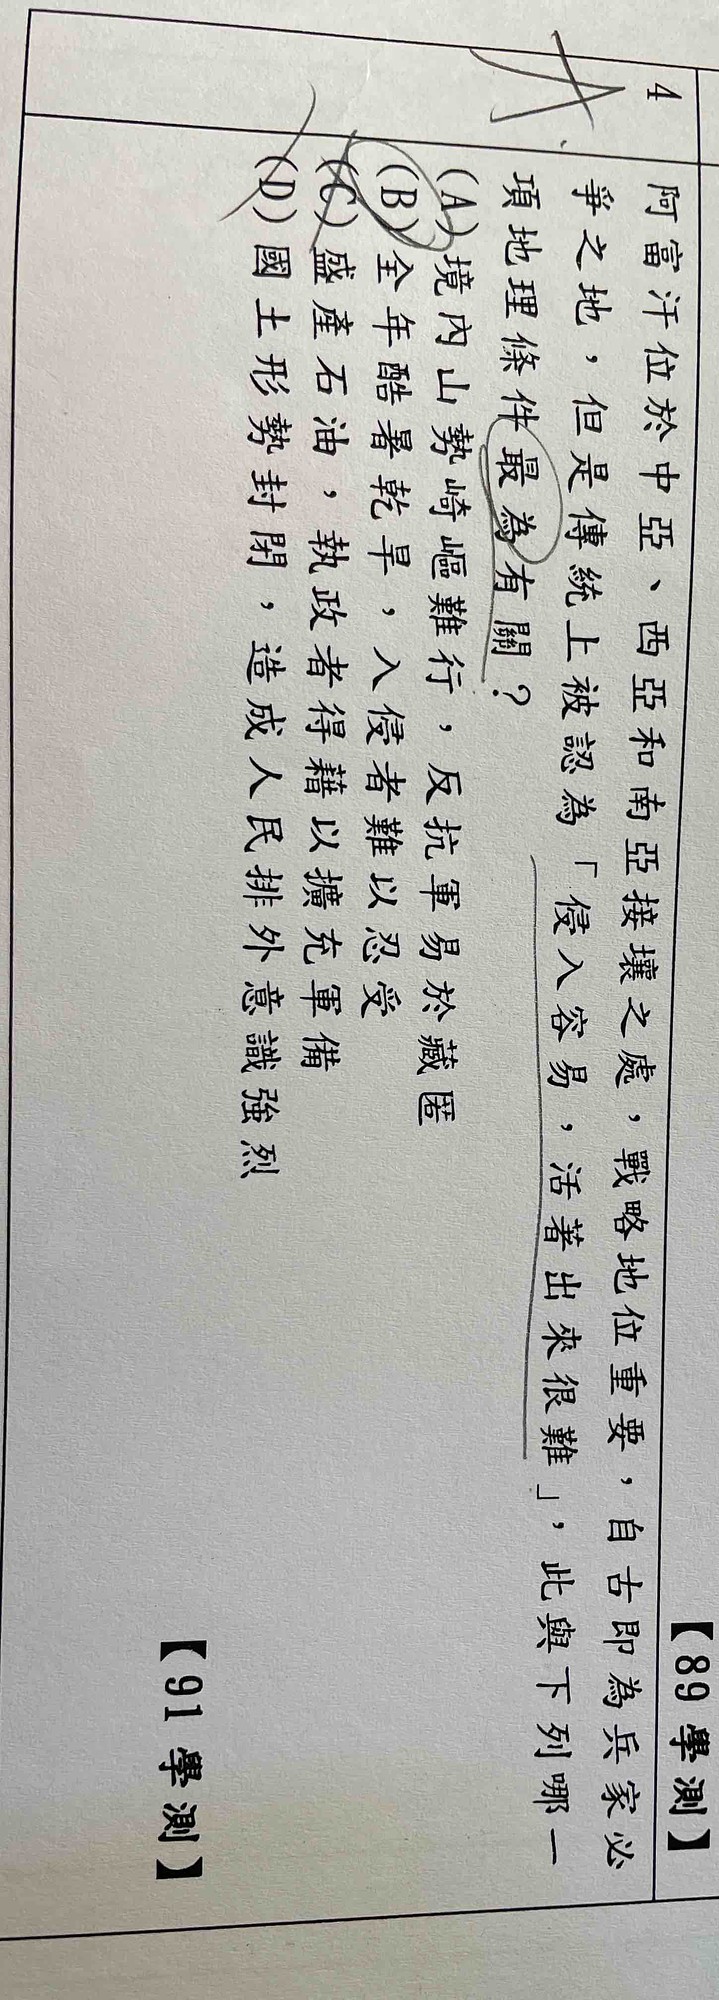 【89 學測】
A
4
阿富汗位於中亞、西亞和南亞接壤之處，戰略地位重要，自古即為兵家必
爭之地，但是傳統上被認為「侵入容易，活著出來很難」，此與下列哪一
項地理條件最為有關？
(A)境內山勢崎嶇難行，反抗軍易於藏匿
(B)全年酷暑乾旱，入侵者難以忍受
(C)盛產石油，執政者得藉以擴充軍備
(D)國土形勢封閉，造成人民排外意識強烈
【91 學測】